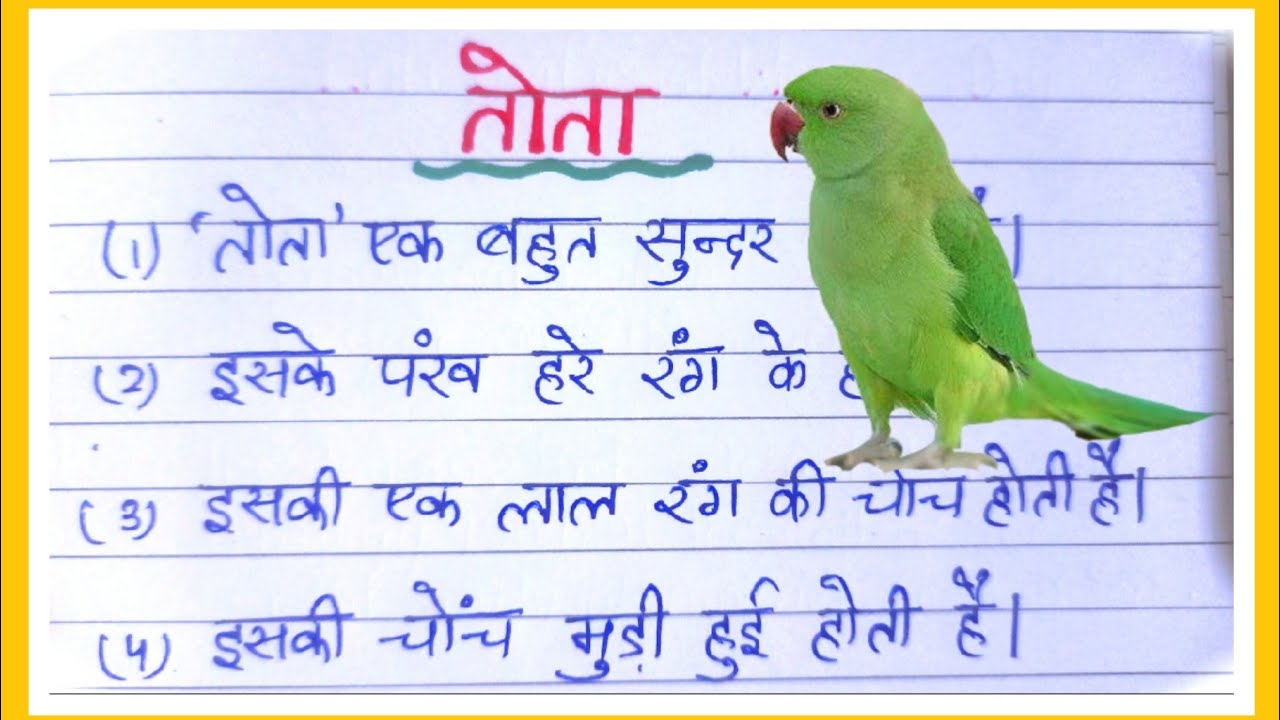 तोता
(1) 'तोता' एक बहुत सुन्दर
(2) इसके पंख हरे रंग के
(3) इसकी एक लाल रंग की चोच होती है।
(4) इसकी चोंच मुड़ी हुई होती है।